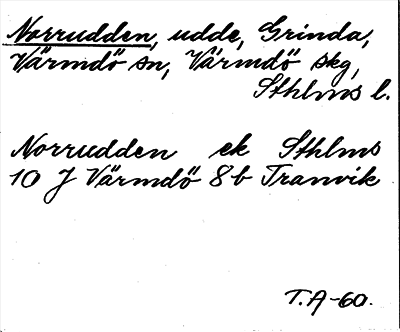 Norrudden, udde, Grinda,
Värmdö sn, Värmdö skg,
Sthlms l.
Norrudden ek Sthlms
10 J Värmdö 8b Tranvik
T.A-60.